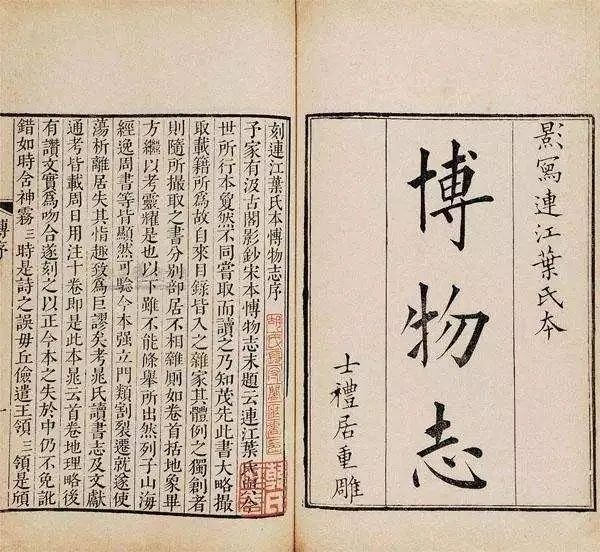 影寫連江葉氏本
博物志
士禮居重雕
刻連江葉氏本博物志序
予家有汲古閣影鈔宋本博物志末題云連江葉氏與今
世所行本敻然不同嘗取而讀之乃知茂先此書大略撮
取載籍所爲故自來目錄皆入之雜家其體例之獨創者
則隨所撮取之書分別部居不相雜厠如卷首括地象畢
方繼以考靈耀是也以下雖不能條舉所出然列子山海
經逸周書等皆顯然可驗今本强立門類割裂遷就遂使
蕩析離居失其情趣致爲巨謬矣考晁氏讀書志及文獻
通考皆載周日用注十卷即是此本晁云首卷地理略後
有讚文實爲吻合遂刻之以正今本之失於中仍不免訛
錯如時含神霧三時是詩之誤毌丘儉遣王領三領是頎
博序